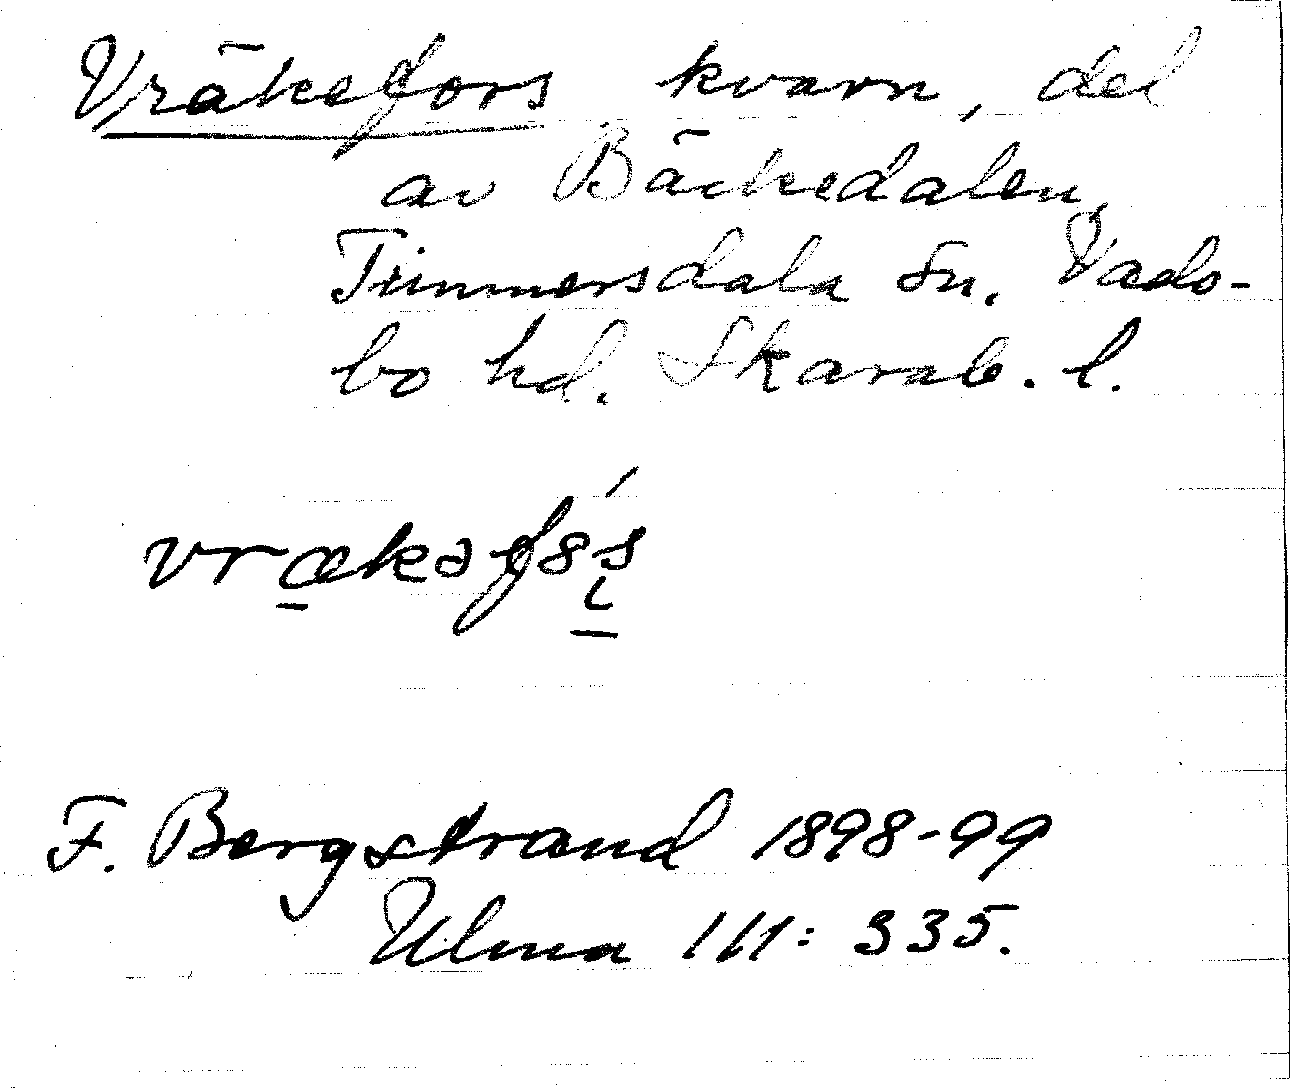 Vräkefors kvarn, del
av Bäckedalen,
Timmersdala sn. Vads-
bo hd. Skarab. l.
F. Bergstrand 1898-99
Ulma 111: 335.